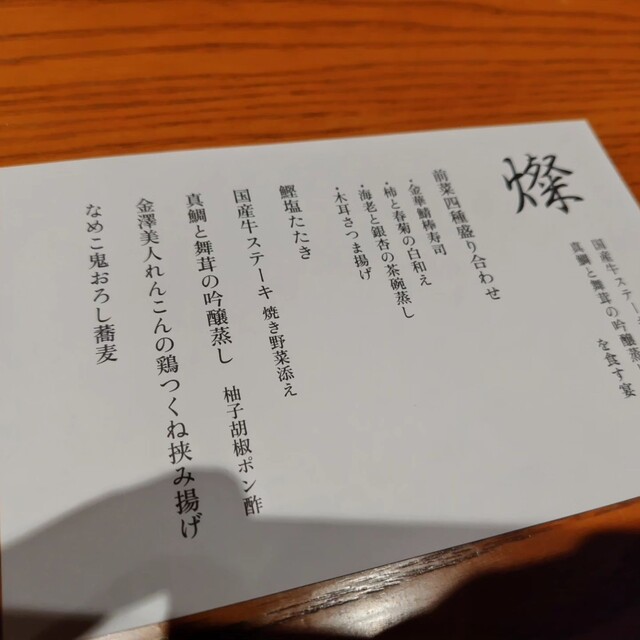 燦
国産牛ステーキ
真鯛と舞茸の吟醸蒸し
を食す宴
前菜四種盛り合わせ
・金華鯖棒寿司
・柿と春菊の白和え
・海老と銀杏の茶碗蒸し
・木耳さつま揚げ
鰹塩たたき
国産牛ステーキ 焼き野菜添え
真鯛と舞茸の吟醸蒸し 柚子胡椒ポン酢
金澤美人れんこんの鶏つくね挟み揚げ
なめこ鬼おろし蕎麦